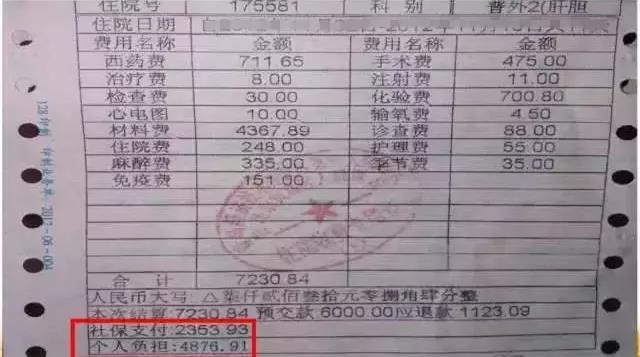 住院号 175581 科别 普外2(肝胆
住院日期
费用名称 金额 费用名称 金额
西药费 711.65 手术费 475.00
治疗费 8.00 注射费 11.00
检查费 30.00 化验费 700.80
心电图 10.00 输氧费 4.50
材料费 4367.89 诊查费 88.00
住院费 248.00 护理费 55.00
麻醉费 335.00 季节费 35.00
免疫费 151.00
合计 7230.84
人民币大写 △柒仟贰佰叁拾元零捌角肆分整
本次结算:7230.84 预交款 6000.00应退款 1123.09
社保支付:2353.93
个人负担:4876.91